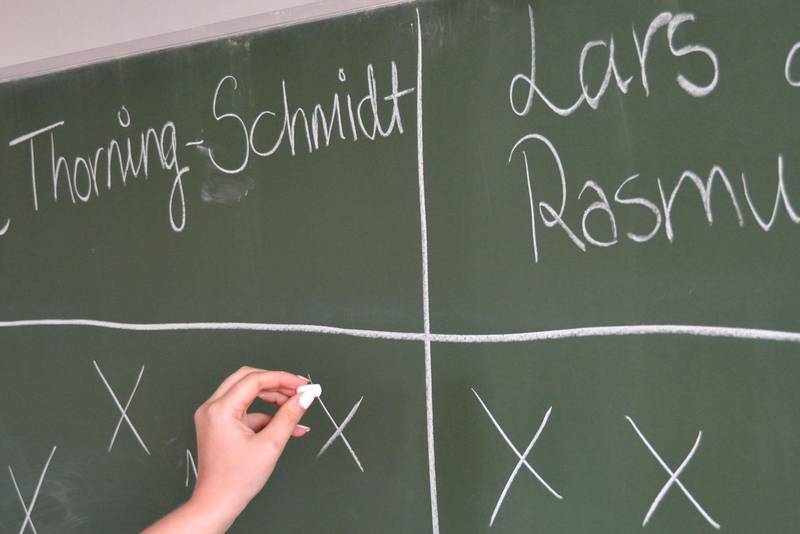 Thorning-Schmidt
Lars
Rasmu
X X
X
X X